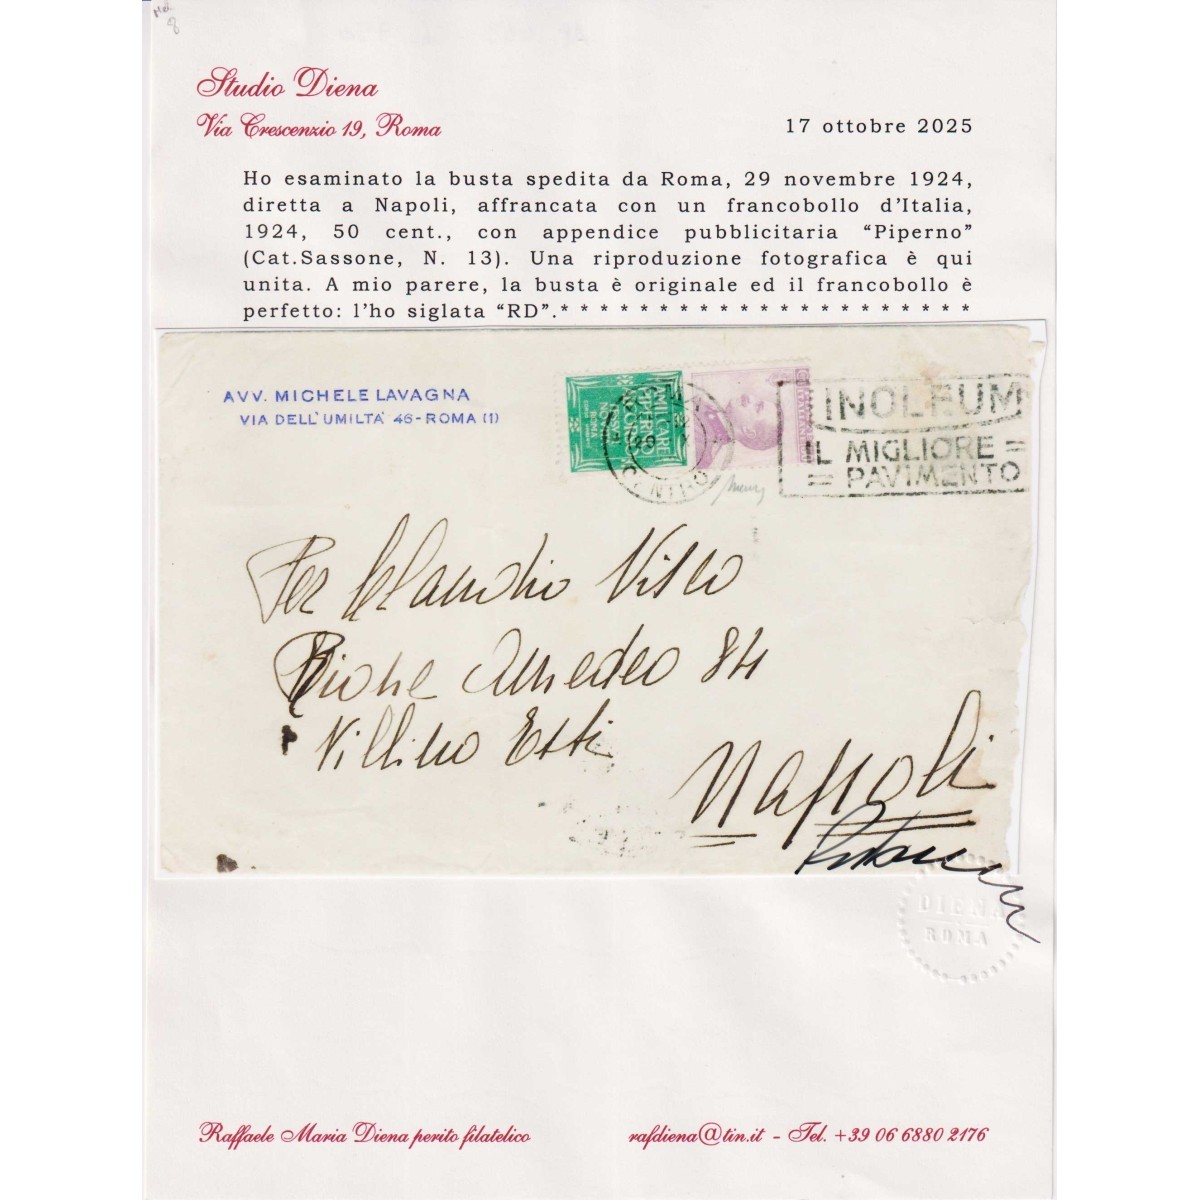 Studio Diena
Via Crescenzio 19, Roma
17 ottobre 2025
Ho esaminato la busta spedita da Roma, 29 novembre 1924,
diretta a Napoli, affrancata con un francobollo d'Italia,
1924, 50 cent., con appendice pubblicitaria “Piperno”
(Cat.Sassone, N. 13). Una riproduzione fotografica è qui
unita. A mio parere, la busta è originale ed il francobollo è
perfetto: l'ho siglata “RD”.* * * * * * * * * * * * * * * * * * * * *
AVV. MICHELE LAVAGNA
VIA DELL'UMILTÀ 46-ROMA (1)
PIPERNO
ROMA
CENTRO
INOLEUM
IL MIGLIORE =
= PAVIMENTO
Per Claudio Visco
Rione Amedeo 84
Villino Etti
Napoli
DIENA
ROMA
Raffaele Maria Diena perito filatelico
rafdiena@tin.it - Tel. +39 06 6880 2176